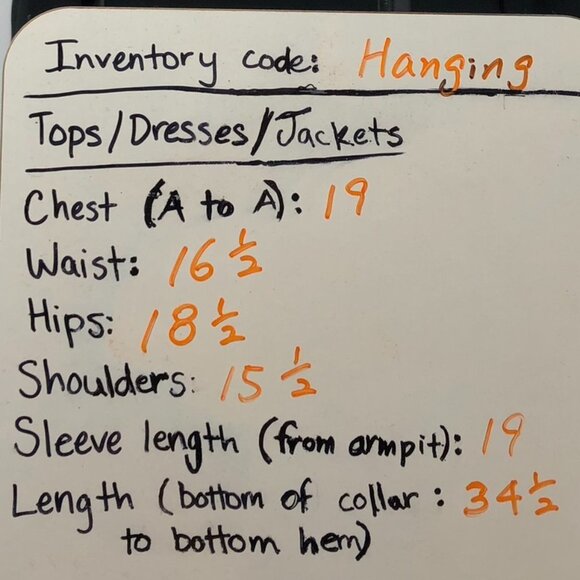 Inventory code: Hanging
Tops/Dresses/Jackets
Chest (A to A): 19
Waist: 16 1/2
Hips: 18 1/2
Shoulders: 15 1/2
Sleeve length (from armpit): 19
Length (bottom of collar : 34 1/2
to bottom hem)